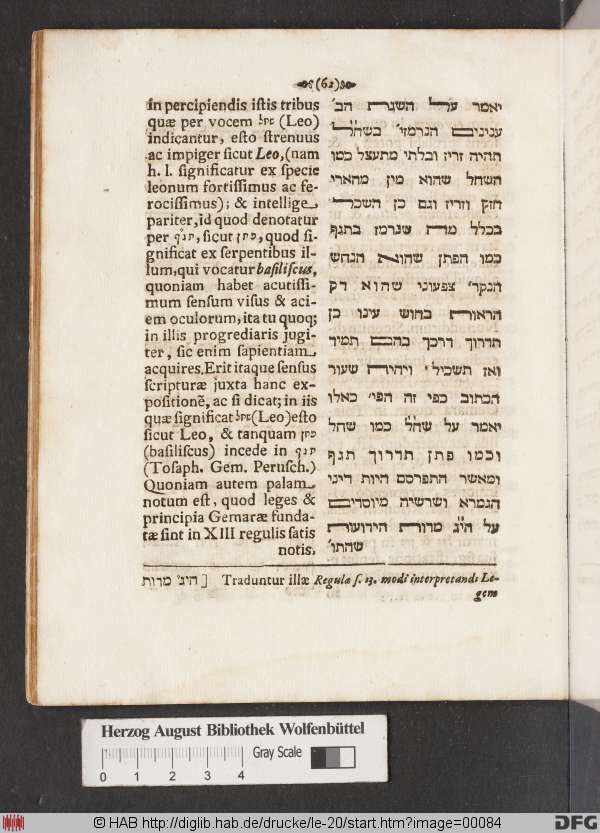 (62)
in percipiendis istis tribus
quæ per vocem שחל (Leo)
indicantur, esto strenuus
ac impiger sicut Leo, (nam
h. l. significatur ex specie
leonum fortissimus ac fe-
rocissimus); & intellige
pariter, id quod denotatur
per תנ״ף, sicut פתן, quod si-
gnificat ex serpentibus il-
lum, qui vocatur basiliscus,
quoniam habet acutissi-
mum sensum visus & aci-
em oculorum, ita tu quoq;
in illis progrediaris jugi-
ter, sic enim sapientiam
acquires. Erit itaque sensus
scripturæ juxta hanc ex-
positionẽ, ac si dicat; in iis
quæ significat שחל (Leo) esto
sicut Leo, & tanquam פתן
(basiliscus) incede in תנף
(Tosaph. Gem. Perusch.)
Quoniam autem palam
notum est, quod leges &
principia Gemaræ funda-
tæ sint in XIII regulis satis
notis,
יאמר על השגת הב׳
ענינים הנרמזי׳ בשח״ל
תהיה זריז ובלתי מתעצל כמו
השחל שהוא מין מהארי׳
חזק וזריז וגם כן השכל
בכלל מה שנרמז בתנף
כמו הפתן שהוא הנחש
הנקר׳ צפעוני שהוא דק
הראות בחוש עינו כן
תדרוך דרכך בהם תמיד
ואז תשכיל׳ ויהיה שעור
הכתוב כפי זה הפי׳ כאלו
יאמר על שח״ל כמו שחל
וכמו פתן תדרוך תנף
ומאשר התפרסם היות דיני
הגמרא ושרשיה מיוסדים
על הי״ג מדות הידועות
שהתו׳
היג׳ מדות ] Traduntur illæ Regulæ s. 13. modi interpretandi Le-
gem
Herzog August Bibliothek Wolfenbüttel
Gray Scale
0 1 2 3 4
© HAB http://diglib.hab.de/drucke/le-20/start.htm?image=00084
DFG